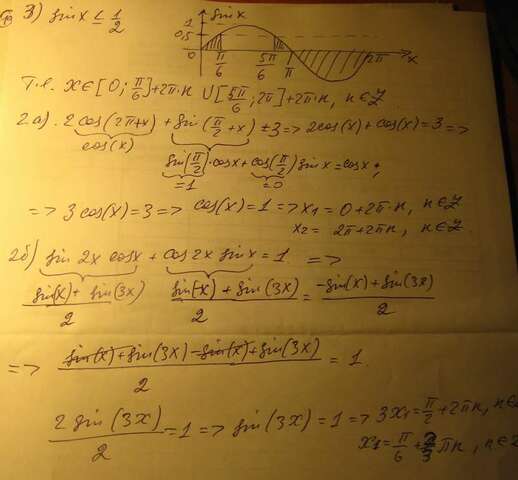 3) sin x ≤ 1/2
sin x
1
0,5
0 π/6 5π/6 π 2π x
т.е. x ∈ [0; π/6] + 2π·n ∪ [5π/6; 2π] + 2π·n, n ∈ Z
2а). 2 cos(2π+x) + sin(π/2 + x) = 3 => 2cos(x) + cos(x) = 3 =>
cos(x)
sin(π/2)·cos x + cos(π/2) sin x = cos x;
=1 =0
=> 3 cos(x) = 3 => cos(x) = 1 => x1 = 0 + 2π·n, n ∈ Z
x2 = 2π + 2π·n, n ∈ Z
2б) sin 2x cos x + cos 2x sin x = 1 =>
(sin(x) + sin(3x))/2 (sin(-x) + sin(3x))/2 = (-sin(x) + sin(3x))/2
=> (sin(x) + sin(3x) - sin(x) + sin(3x))/2 = 1.
2 sin(3x)/2 = 1 => sin(3x) = 1 => 3x1 = π/2 + 2πn, n ∈ Z
x1 = π/6 + 2/3 πn, n ∈ Z